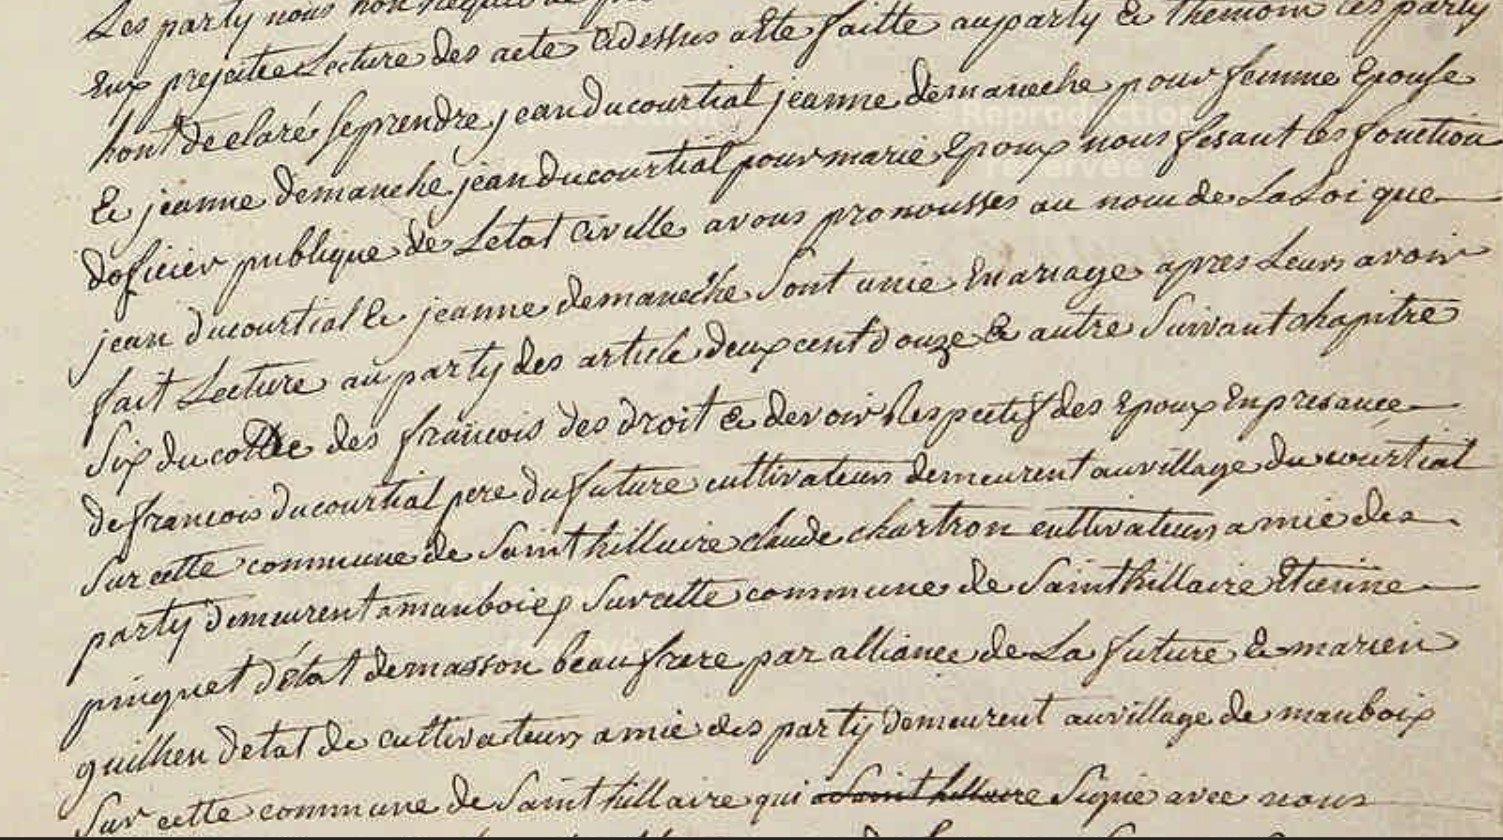 Les party nous hon requis de
Eux prejeitie Lecture des acte cidessus aete faitte auparty & themoin les party
hont declaré se prendre jean ducourtial jeanne demaneche pour femme Epouse
& jeanne demanche jean ducourtial pour marie Epoux nous fesant les fonction
doficier publique de Letat civille avons pronousses au nom de La Loi que
jean ducourtial & jeanne demaneche sont unie En ariage apres Leurs avoir
fait Lecture au party des article deux cent douze & autre suivant chapitre
six du codde des francois des droit & devoir Respectif des Epoux En presance
de francois ducourtial pere du future cultivateurs demeurent au village du courtial
sur cette commune de saint hillaire claude chartron cultivateurs amie des
party demeurent a mauboiex sur cette commune de saint hillaire Etienne
pinguet détat demasson beau frere par alliance de La future & marien
guillien detat de cultivateurs amie des party demeurent au village de mauboix
sur cette commune de saint hillaire qui a saint hillaire signe avec nous